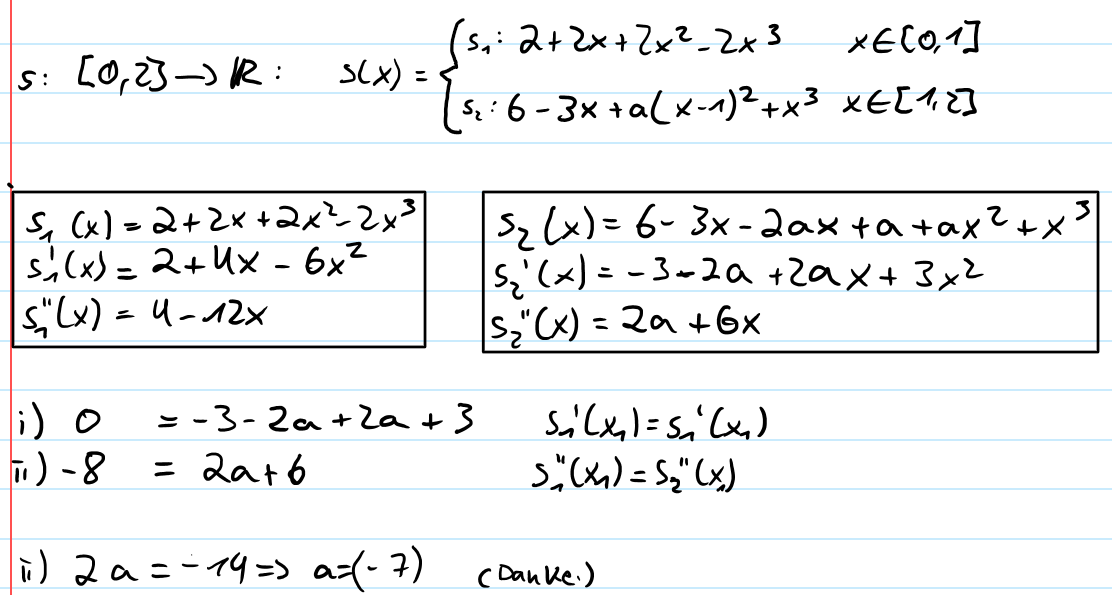 s: [0,2] → ℝ : s(x) = { s₁: 2+2x+2x²-2x³ x∈[0,1]
s₂: 6-3x+a(x-1)²+x³ x∈[1,2]
s₁(x) = 2+2x+2x²-2x³
s₁'(x) = 2+4x-6x²
s₁''(x) = 4-12x
s₂(x) = 6-3x-2ax+a+ax²+x³
s₂'(x) = -3-2a+2ax+3x²
s₂''(x) = 2a+6x
i) 0 = -3-2a+2a+3 s₁'(x₁)=s₁'(x₁)
ii) -8 = 2a+6 s₁''(x₁)=s₂''(x₁)
ii) 2a=-14 => a=(-7) (Danke.)